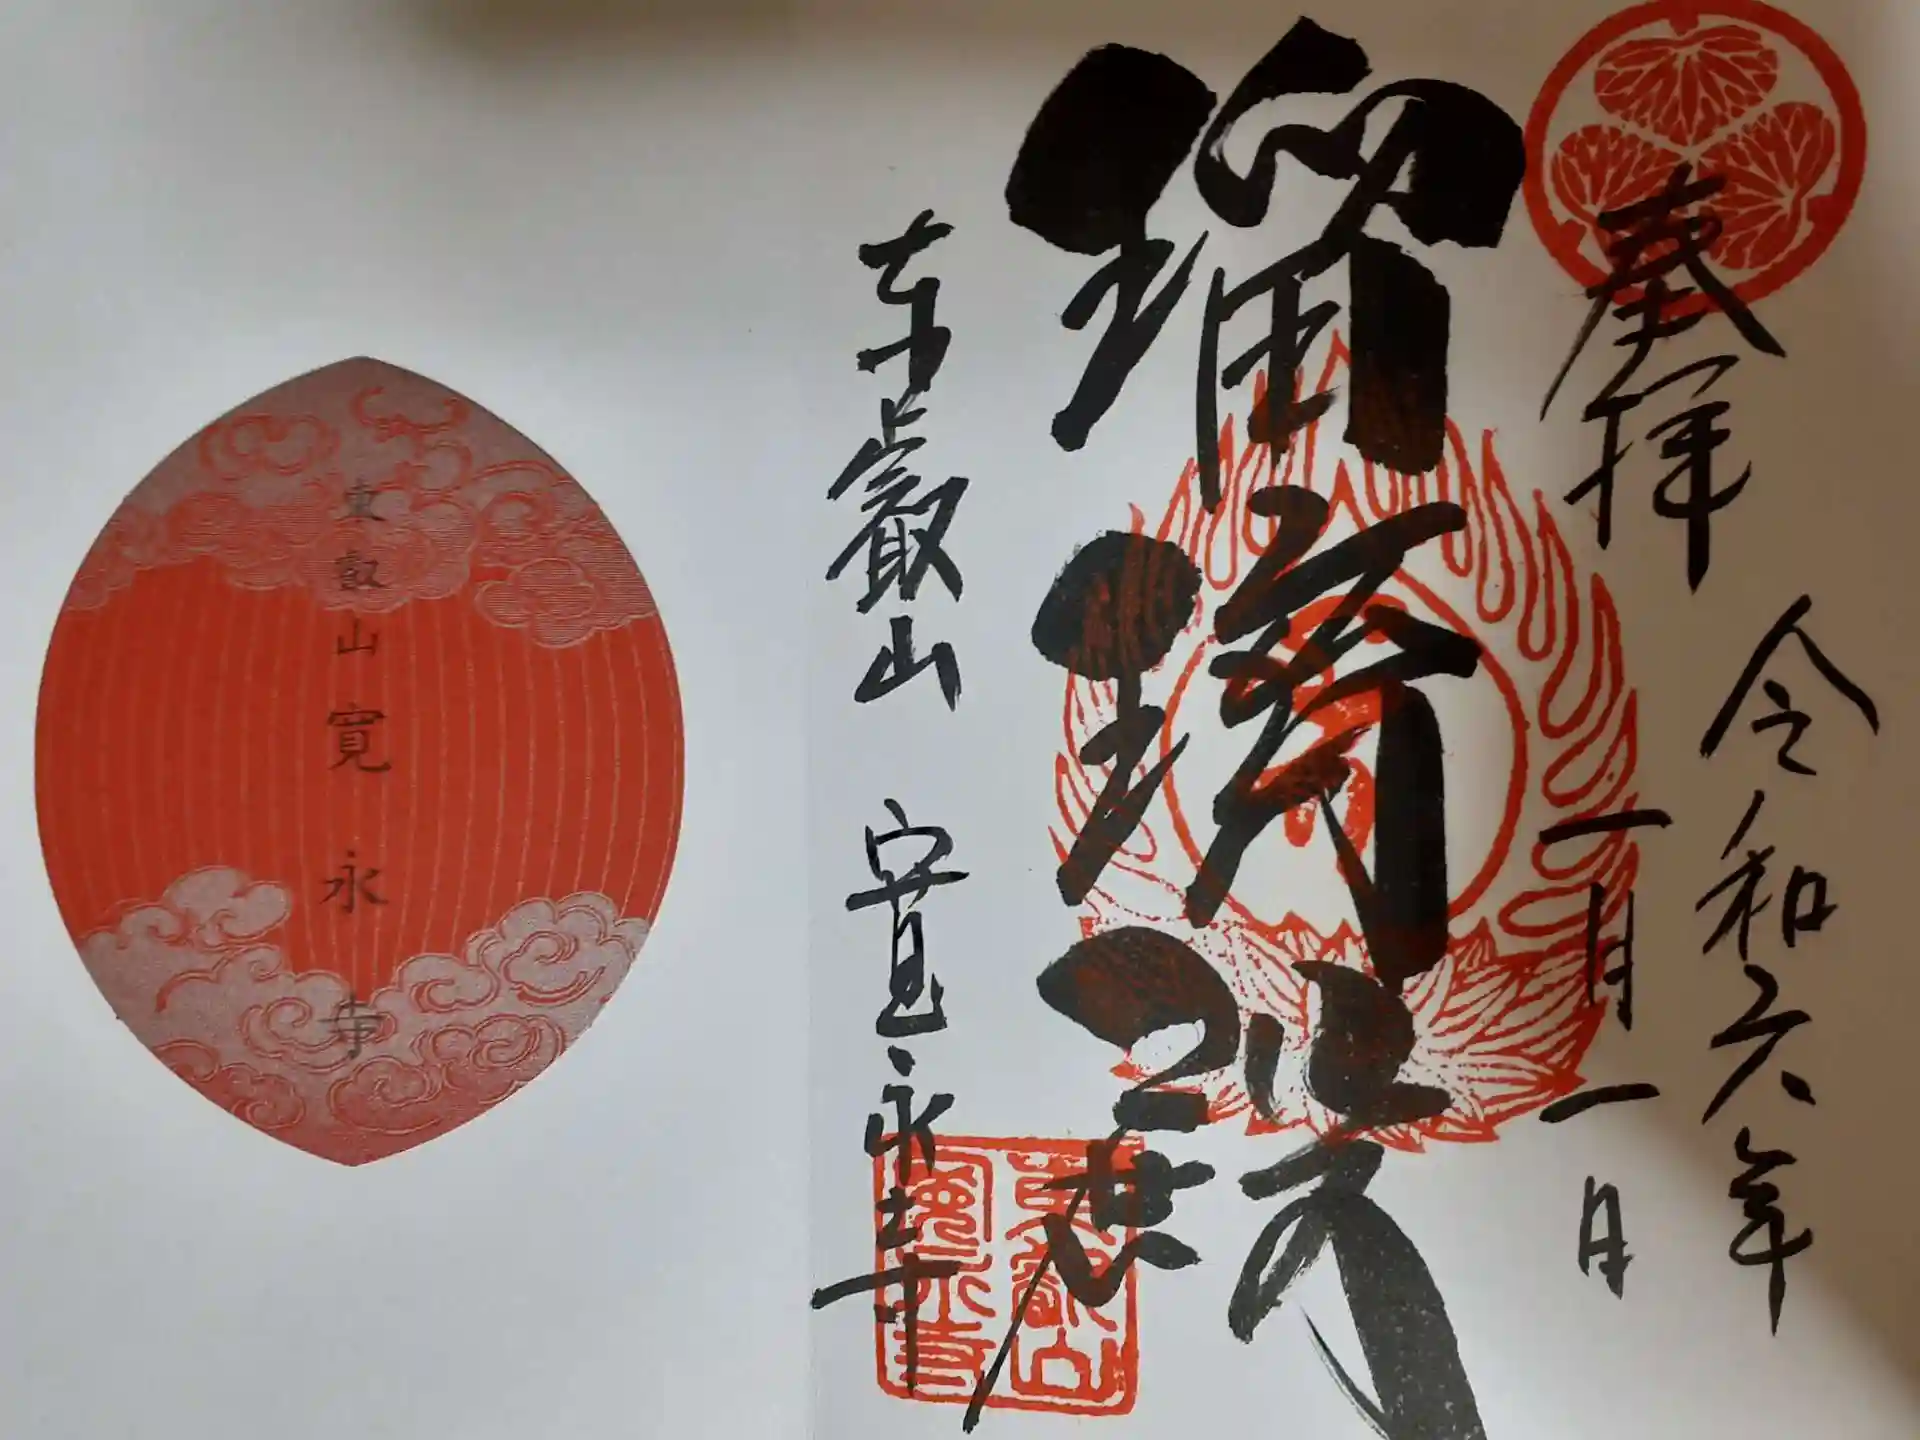 奉拝
令和六年
一月一日
瑠璃殿
東叡山 寛永寺
東叡山
寛永寺
東叡山寛永寺